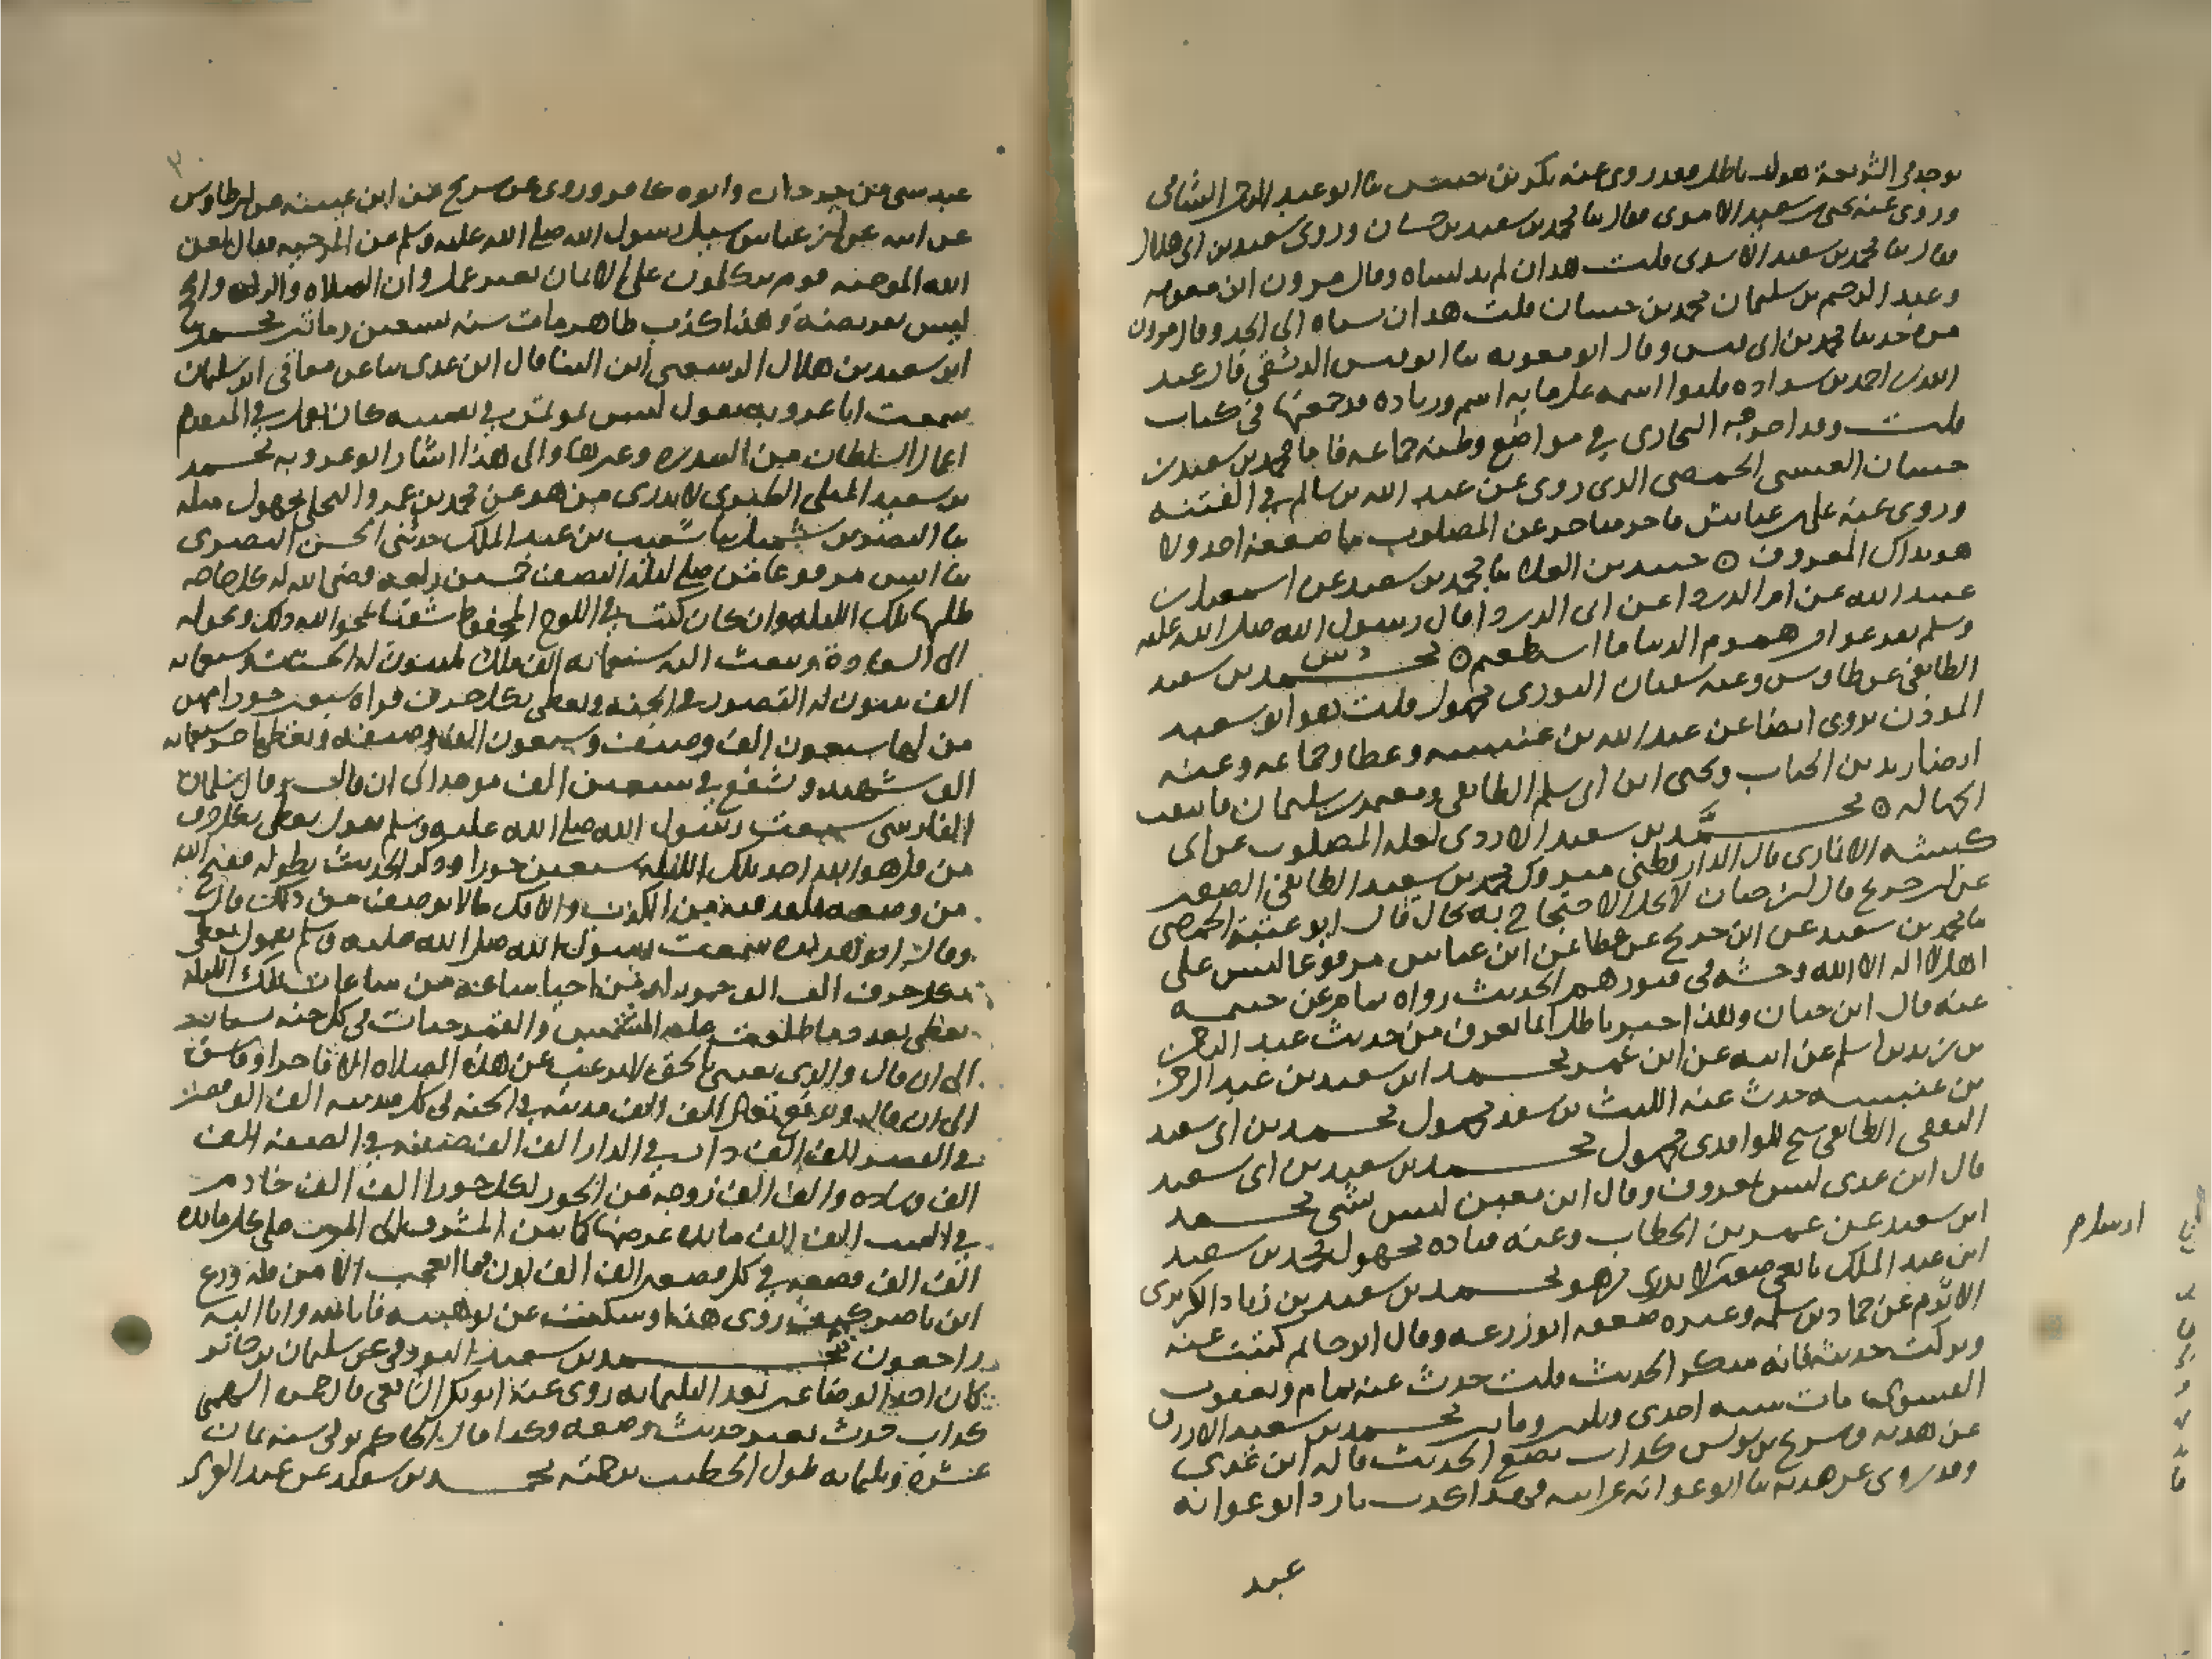 يوجد في الشريعة هو له باطل وقد روى عنه بكر بن خنيس ثنا ابو عبد الرحمن الشامي
وروى عنه يحيى بن سعيد الاموي فقال ثنا محمد بن سعيد بن حسان وروى سعيد بن ابي هلال
فقال ثنا محمد بن سعيد الاسدي قلت هذان لم يدلساه وقال مروان ابن معويه
وعبد الرحيم بن سليمان محمد بن حسان قلت هذان نسباه الى الجد وقال مروان
مرة حدثنا محمد بن ابي قيس وقال ابو معويه ثنا ابو قيس الدمشقي قال عبد
الله بن احمد بن سواده قلبوا اسمه على مايه اسم وزياده قد جمعتها في كتاب
قلت وقد اخرجه البخاري في مواضع وظنه جماعه فاما محمد بن سعيد بن
حسان العنسي الحمصي الذي روى عن عبد الله بن سالم في الفتنه
وروى عنه علي بن عياش فاخر متاخر عن المصلوب ما ضعفه احد ولا
هو بذاك المعروف ⊙ جنيد بن العلا ثنا محمد بن سعيد عن اسمعيل بن
عبيد الله عن ام الدرداء عن ابي الدرداء قال رسول الله صلى الله عليه
وسلم تفرغوا من هموم الدنيا ما استطعتم ⊙ محمد بن سعيد
الطايفي عن طاوس وعنه سفيان الثوري مجهول قلت هو ابو سعيد
الموذن يروي ايضا عن عبد الله بن عنبسه وعطا وجماعه وعنه
ايضا زيد بن الحباب ويحيى ابن ابي سليم الطايفي ومعتمر بن سليمان فانتفت
الجهاله ⊙ محمد بن سعيد الازدي لعله المصلوب عن ابي
كبشه الانماري قال الدارقطني متروك محمد بن سعيد الطايفي الصغير
عن ابن جريج قال ابن حبان لا يحل الاحتجاج به بحال قال ابو عتبة الحمصي
ثنا محمد بن سعيد عن ابن جريج عن عطا عن ابن عباس مرفوعا ليس على
اهل لا اله الا الله وحشه في قبورهم الحديث رواه
عنه قال ابن حبان وهذا خبر باطل انما يعرف من حديث عبد الرحمن
بن زيد بن اسلم عن ابيه عن ابن عمر محمد ابن سعيد بن عبد الرحمن
بن عنبسه حدث عنه الليث بن سعد مجهول محمد بن ابي سعيد
الثقفي الطايفي شيخ للواقدي مجهول محمد بن سعيد بن ابي سعيد
قال ابن عدي ليس بمعروف وقال ابن معين ليس بشي محمد
ابن سعيد عن عمر بن الخطاب وعنه قتاده مجهول محمد بن سعيد
ابن عبد الملك تابعي صغير لا يدرى من هو محمد بن سعيد بن زياد الكريزي
الاثرم عن حماد بن سلمه وغيره ضعفه ابو زرعه وقال ابو حاتم كتبت عنه
وتركت حديثه فانه منكر الحديث قلت حدث عنه تمام ويعقوب
الفسوي مات سنه احدى وثلاثين ومايتين محمد بن سعيد الازرق
عن هدبه وسريج بن يونس كذاب يضع الحديث قاله ابن عدي
وقد روى عن هدبه ثنا ابو عوانه عن ابيه فهذا كذب بارد ابو عوانه
عبد
عبد سبي من جرجان وابوه كافر وروى عن سريج عن ابن عيينه عن ابن طاوس
عن ابيه عن ابن عباس سيل رسول الله صلى الله عليه وسلم عن المرجيه فقال لعن
الله المرجئه قوم يتكلمون على الايمان بغير عمل وان الصلاه والزكاه والحج
ليس بفريضة وهذا كذب ظاهر مات سنه تسعين ومايتين محمد
ابن سعيد بن هلال الرسعني ابن البنا قال ابن عدي ثنا عن معافى ابن سليمان
سمعت ابا عروبه يقول ليس بموثق في نفسه كان يعمل في المقدم
اعمال السلطان من البندره وغيرها والى هذا اشار ابو عروبه محمد
بن سعيد الميلي الطبري لا يدرى من هو عن محمد بن عمرو البجلي مجهول مثله
ثنا النضر بن شميل ثنا شعيب بن عبد الملك حدثني الحسن البصري
ثنا انس مرفوعا من صلى ليلة النصف خمسين ركعه قضى الله له كل حاجه
طلبها تلك الليله وان كان كتب في اللوح المحفوظ شقيا يمحو الله ذلك ويحوله
الى السعادة ويبعث اليه سبعمايه الف ملك يكتبون له الحسنات وسبعمايه
الف يبنون له القصور في الجنه ويعطى بكل حرف قراه سبعين حورا منهن
من لها سبعون الف وصيف وسبعون الف وصيفه ويعطى اجر سبعمايه
الف شهيد ويشفع في سبعين الف موحد الى ان قال وقال سلمان
الفارسي سمعت رسول الله صلى الله عليه وسلم يقول يعطى بكل حرف
من قل هو الله احد تلك الليله سبعين حورا وذكر الحديث بطوله فقبح الله
من وضعه فلقد فيه من الكذب والافك ما لا يوصف من ذلك قال
وقال ابو هريره سمعت رسول الله صلى الله عليه وسلم يقول يعطى
بكل حرف الف الف حورا ومن احيا ساعه من ساعات تلك الليله
يعطى بعدد ما طلعت عليه الشمس والقمر جنات في كل جنه بساتين
الى ان قال والذي بعثني بالحق لا يرغب عن هذه الصلاه الا فاجر او فاسق
الى ان قال ويرفع الله له الف الف مدينه في الجنه في كل مدينه الف الف قصر
في القصر الف الف دار في الدار الف الف صفه في الصفه الف
الف وساده والف الف زوجه من الحور لكل حورا الف الف خادم
في البيت الف الف مايده عرضها كما بين المشرق الى المغرب على كل مايده
الف الف قصعه في كل قصعه الف الف لون فما العجب الا من قلة ورع
ابن ناصر كيف روى هذا وسكت عن توهينه فانا لله وانا اليه
راجعون محمد بن سعيد البورقي عن سليمان بن جابر
كان احد الوضاعين بعد الثلثمايه روى عنه ابو بكر الشافعي قال حمزه السهمي
كذاب حدث بغير حديث وضعه وكذا قال الحاكم توفي سنه ثمان
عشره وثلثمايه طول الخطيب ترجمته محمد بن سعيد عن عبد الوارث